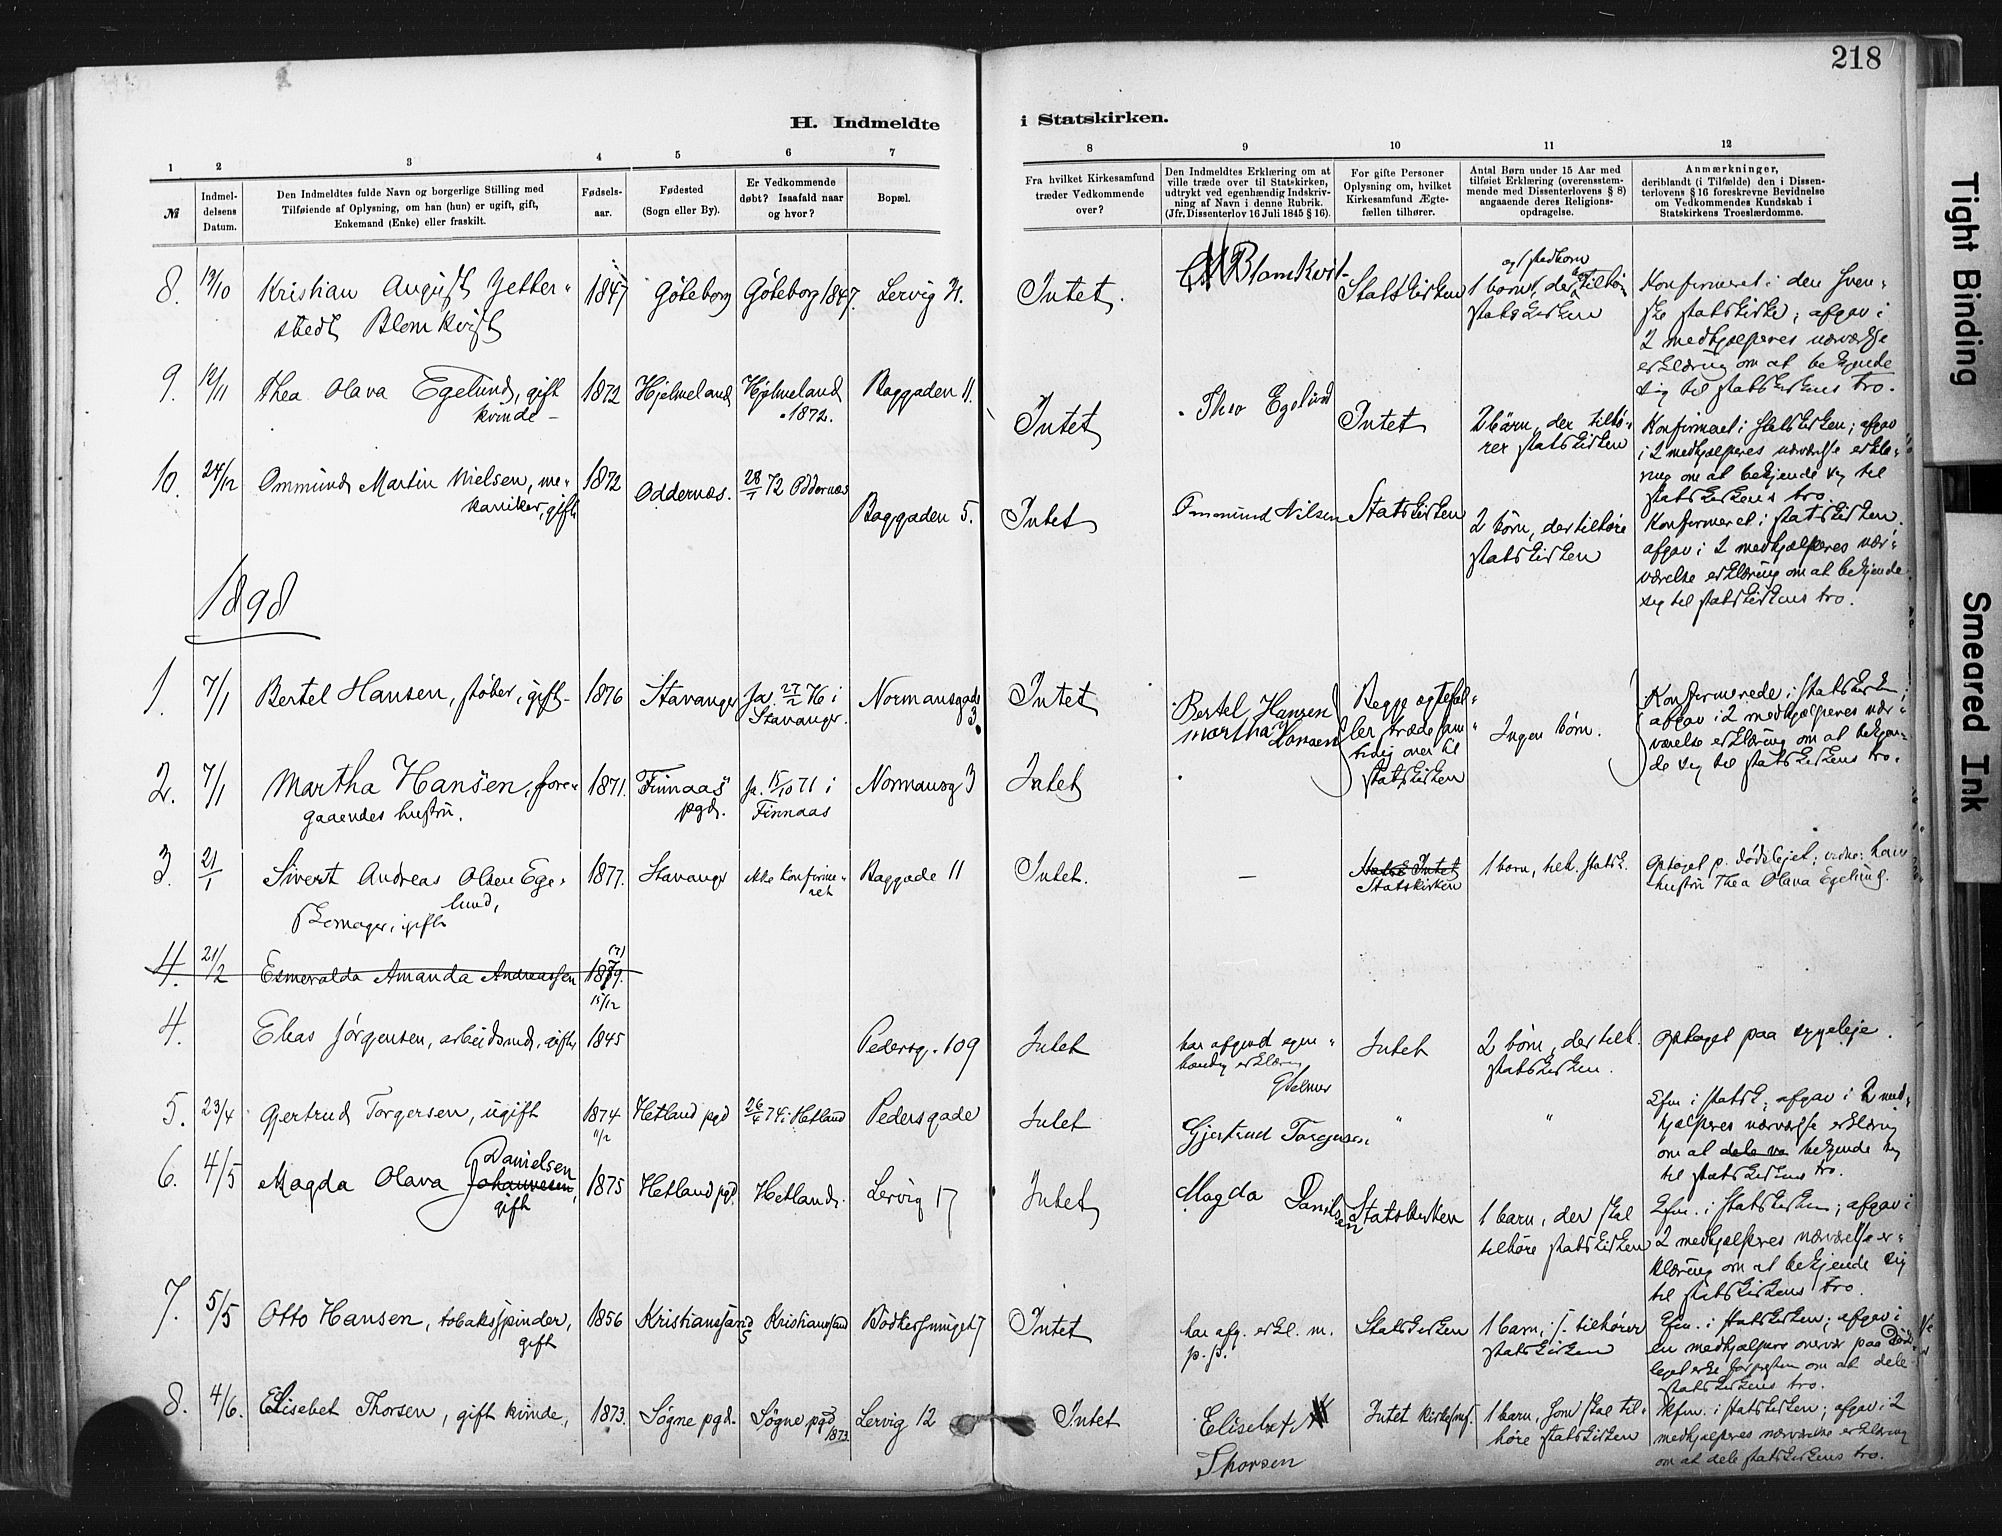 218
H. Indmeldte i Statskirken.
1 2 3 4 5 6 7 8 9 10 11 12
№
Indmel-
delsens
Datum.
Den Indmeldtes fulde Navn og borgerlige Stilling med
Tilføiende af Oplysning, om han (hun) er ugift, gift,
Enkemand (Enke) eller fraskilt.
Fødsels-
aar.
Fødested
(Sogn eller By).
Er Vedkommende
døbt? Isaafald naar
og hvor?
Bopæl.
Fra hvilket Kirkesamfund
træder Vedkommende
over?
Den Indmeldtes Erklæring om at
ville træde over til Statskirken,
udtrykt ved egenhændig Indskriv-
ning af Navn i denne Rubrik.
(Jfr. Dissenterlov 16 Juli 1845 § 16).
For gifte Personer
Oplysning om, hvilket
Kirkesamfund Ægte-
fællen tilhører.
Antal Børn under 15 Aar med
tilføiet Erklæring (overensstem-
mende med Dissenterlovens § 8)
angaaende deres Religions-
opdragelse.
Anmærkninger,
deriblandt (i Tilfælde) den i Dissen-
terlovens § 16 foreskrevne Bevidnelse
om Vedkommendes Kundskab i
Statskirkens Troeslærdomme.
8. 13/10 Kristian August Zetter-
stedt Blomkvist
1847 Göteborg Göteborg 1847. Lervig 21.
Intet.
Blomkvist
Statskirken
statskirken
Konfirmeret i den sven-
ske statskirke; afgav i
2 medhjælperes nærværelse
erklæring om at bekjende
sig til statskirkens tro.
9. 12/11 Thea Olava Egelund, gift
kvinde
1872 Hjelmeland Hjelmeland
1872.
Baggaden 11.
Intet
Thea Egelund
Intet
2 børn, der tilhø-
rer statskirken
Konfirmeret i statskirken; afgav
i 2 medhjælperes nærværelse erklæ-
ring om at bekjende sig til
statskirkens tro.
10. 24/12 Ommund Martin Nielsen, me-
kaniker, gift
1872 Oddernæs. 28/1 72 Oddernæs
Baggaden 5.
Intet
Ommund Nilsen
Statskirken
2 børn, der tilhøre
statskirken
Konfirmeret i statskirken.
afgav i 2 medhjælperes nær-
værelse erklæring om at bekjende
sig til statskirkens tro.
1898
1. 7/1 Bertel Hansen, støber, gift
1876 Stavanger Ja. 27/2 76 i
Stavanger.
Normansgade
3.
Intet
Bertel Hansen
Martha Hansen
Begge ægtefæl-
ler træde sam-
tidig over til
statskirken
Ingen børn.
Konfirmerede i statskirken;
afgav i 2 medhjælperes nær-
værelse erklæring om at bekjen-
de sig til statskirkens tro.
2. 7/1 Martha Hansen, fore-
gaaendes hustru.
1871. Finnaas
pgd.
Ja. 15/10 71 i
Finnaas
Normansg 3
Intet
3. 21/1 Sivert Andreas Olsen Ege-
lund,
Skomager, gift
1877. Stavanger ikke konfirme-
ret
Baggade 11
Intet.
—
Intet
Statskirken
1 barn, tilh. statsk.
Optaget p. dødsleiet; vidne: hans
hustru Thea Olava Egelund.
4. 21/2 Esmeralda Amanda Andreassen
1879.
15/12
4. Elias Jørgensen, arbeidsmd, gift
1845
Pedersg. 109
Intet
har afgivet egen-
hændig erklæring
Intet
2 børn, der tilh.
statskirken.
Optaget paa sygeleje.
5. 23/4 Gjertrud Torgersen, ugift
1874
11/2
Hetland pgd 26/4 74 i Hetland Pedersgade
Intet
Gjertrud Torgersen
"
"
Kfm. i statsk; afgav i 2 med-
hjælperes nærværelse erklæring
om at dele va bekjende sig
til statskirkens tro.
6. 4/5 Magda Olava Johannesen,
Danielsen
gift
1875 Hetland pgd. Hetland. Lervig 17
Intet
Magda Danilsen
Statskirken
1 barn, der skal
tilhøre statskirken
Kfm. i statskirken; afgav i
2 medhjælperes nærværelse er-
klæring om at bekjende sig
til statskirkens tro.
7. 5/5 Otto Hansen, tobaksspinder,
gift
1856 Kristianssand
S
Kristianssand Bødkersmuget 7
Intet
har afg. erkl. m.
p. p.
Statskirken
1 barn, s. tilhører
statskirken
Kfm. i statskirken; afgav i
en medhjælpers overvær paa Døds-
leget erkl. for præsten om at dele
statskirkens tro.
8. 4/6. Elisebet Thorsen, gift kvinde,
1873. Søgne pgd. Søgne pgd
1873.
Lervig 12
Intet
Elisebet
Thorsen
Intet kirkesmf.
1 barn, som skal til-
høre statskirken
Kfm. i statskirken; afgav i 2
medhjælperes nærværelse erklæring
om at dele statskirkens tro.
Tight Binding
Smeared Ink